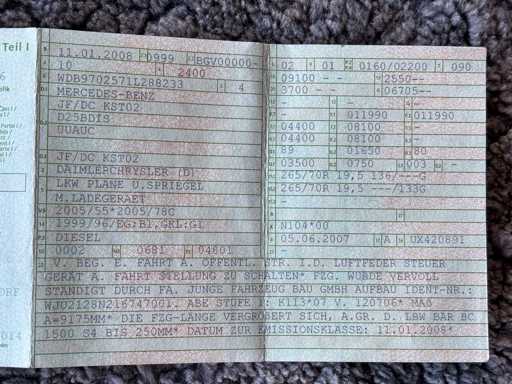 Teil I
11.01.2008 0999 BGV00000-
10 2400
WDB9702571L288233 4
MERCEDES-BENZ
JF/DC KST02
D25BDIS
UUAUC
JF/DC KST02
DAIMLERCHRYSLER (D)
LKW PLANE U.SPRIEGEL
M.LADEGERAET
2005/55*2005/78G
1999/96/EG;B1,GKL:G1
DIESEL
0002 0681 04801
02 01 0160/02200 090
09100 -- 2550--
3700 -- 06705--
011990 011990
04400 08100 -
04400 08100 -
89 01650 80
03500 0750 003 -
265/70R 19,5 136/---G
265/70R 19,5 ---/133G
-
N104*00
05.06.2007 A UX420891
V. BEG. E. FAHRT A. ÖFFENTL. STR. I.D. LUFTFEDER STEUER
GERÄT A. FAHRT STELLUNG ZU SCHALTEN* FZG. WURDE VERVOLL
STÄNDIGT DURCH FA. JUNGE FAHRZEUG BAU GMBH AUFBAU IDENT-NR.:
WJ02128N216747001. ABE STUFE 1: K113*07 V. 120706* MAß
A=9175MM* DIE FZG-LÄNGE VERGRÖßERT SICH, A.GR. D. LBW BAR BC
1500 S4 BIS 250MM* DATUM ZUR EMISSIONSKLASSE: 11.01.2008*